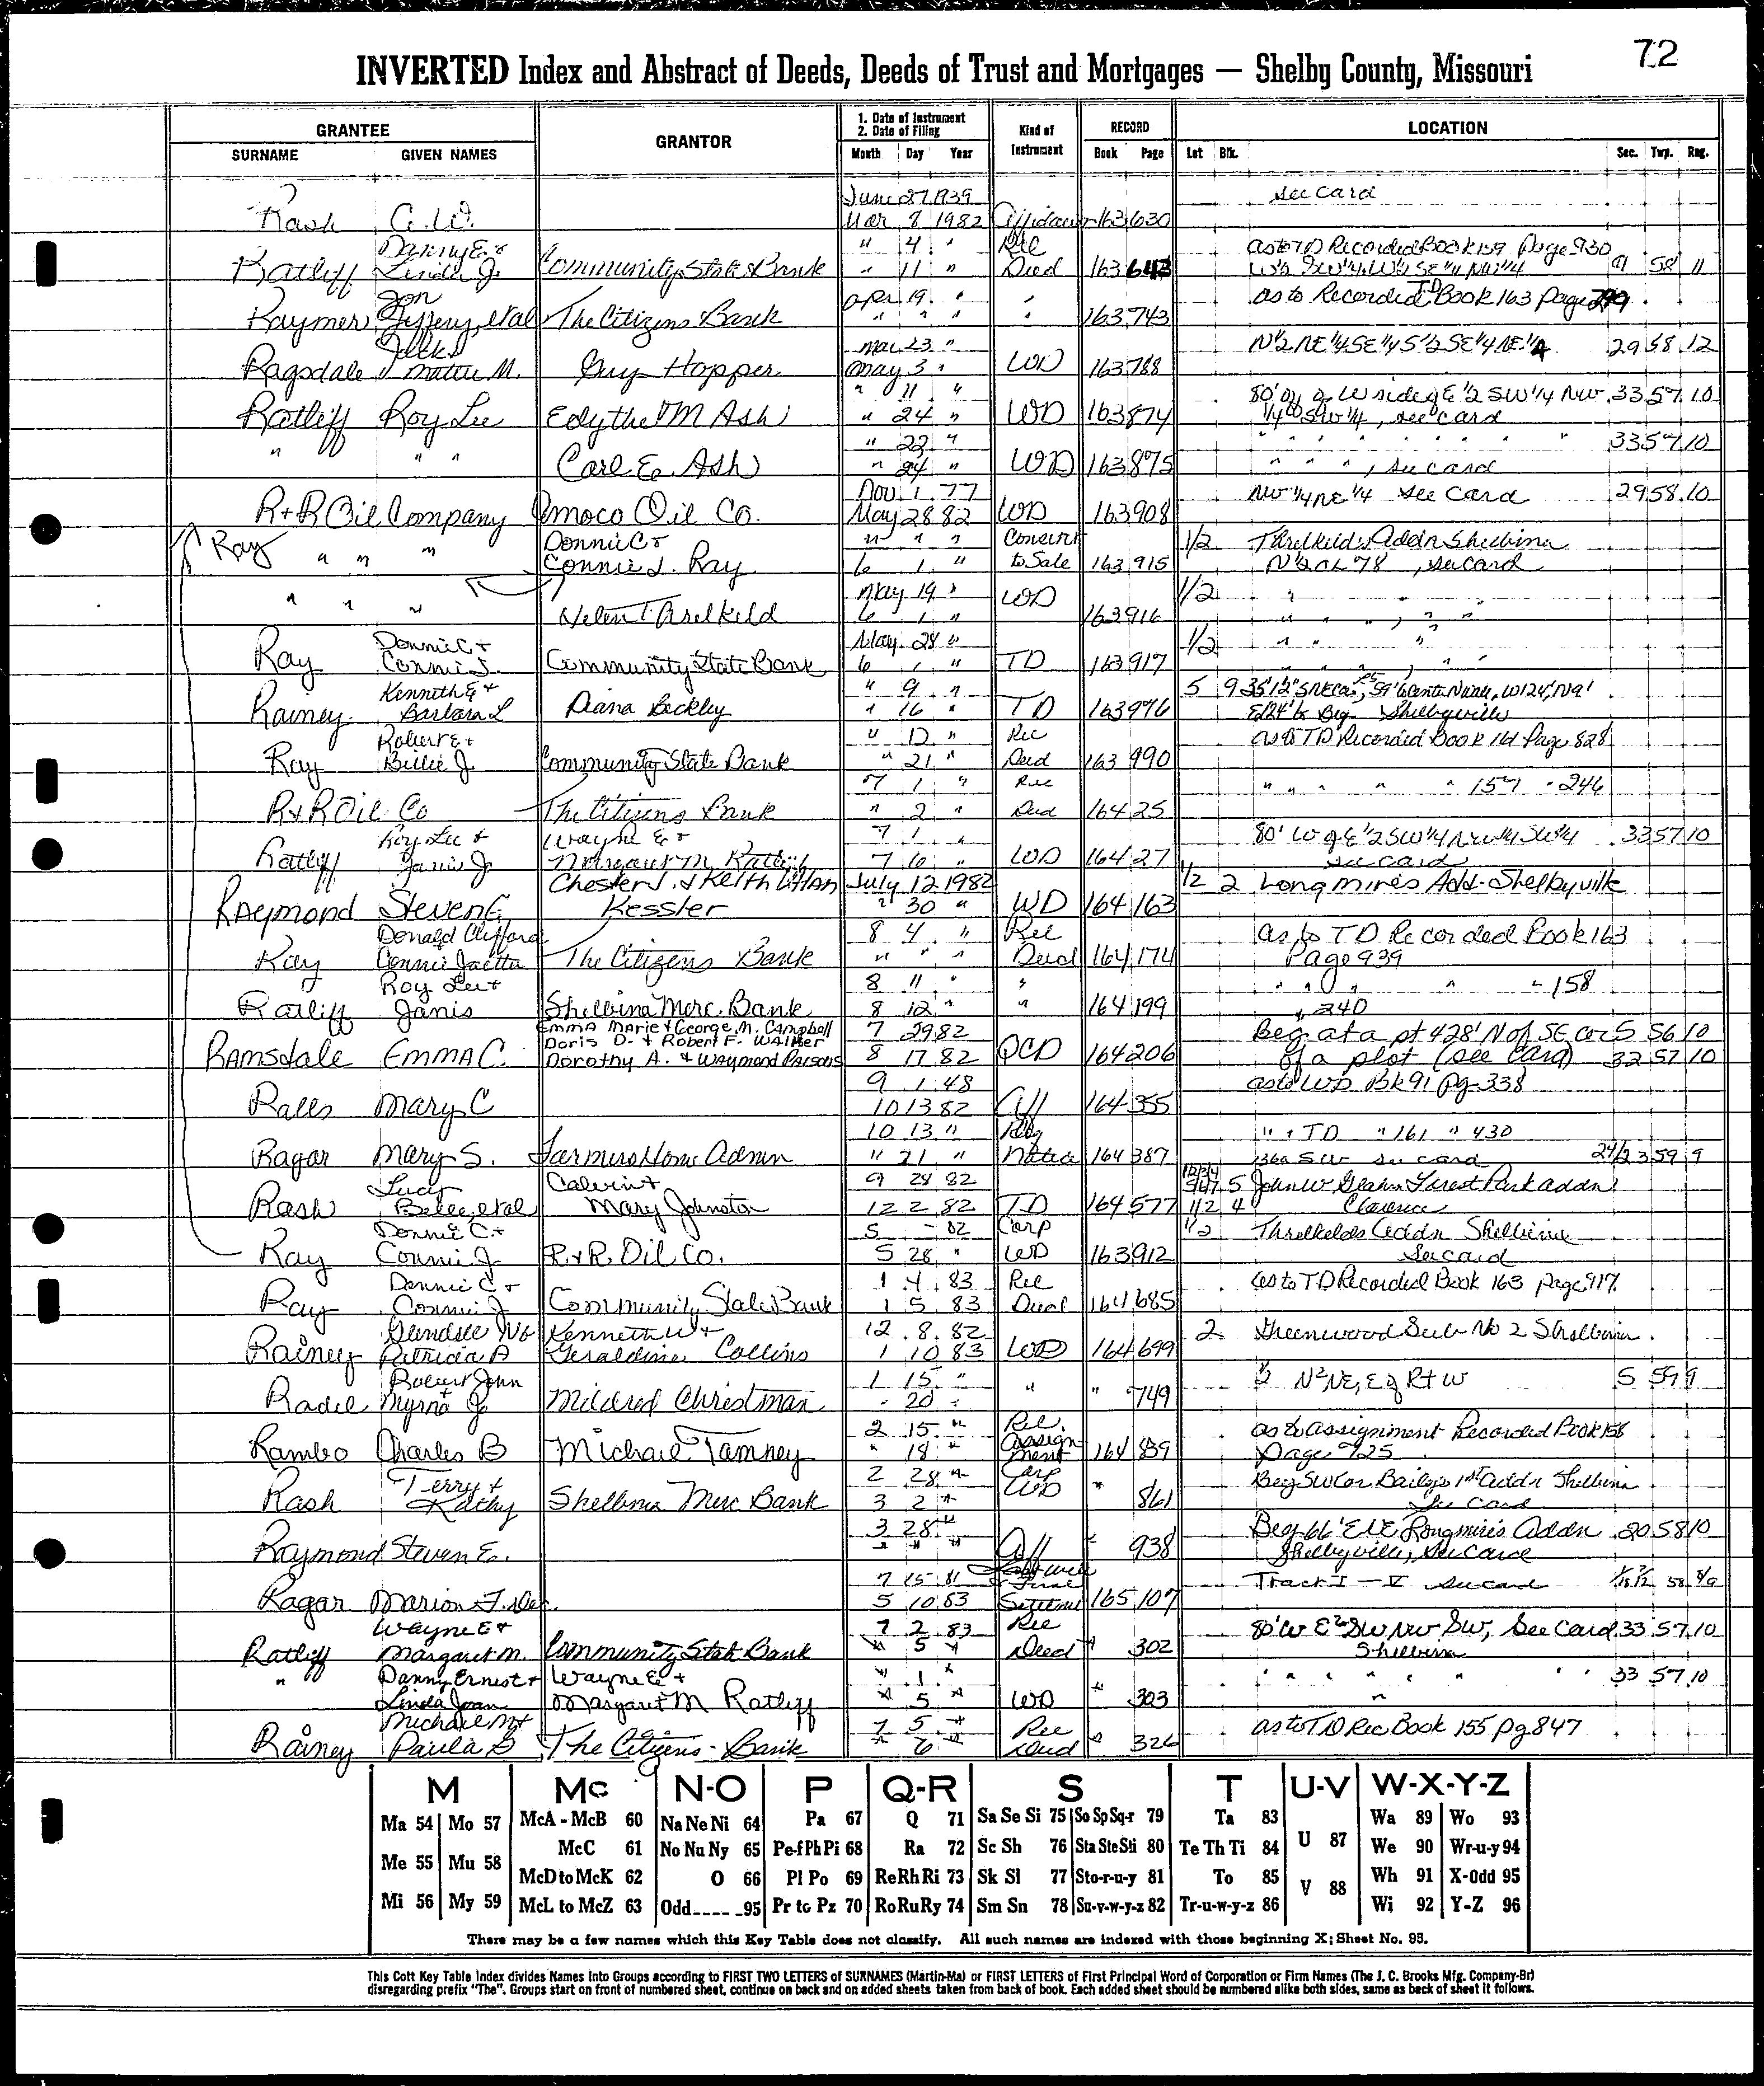 72
INVERTED Index and Abstract of Deeds, Deeds of Trust and Mortgages — Shelby County, Missouri
GRANTEE
SURNAME GIVEN NAMES
GRANTOR
1. Date of Instrument
2. Date of Filing
Month Day Year
Kind of Instrument
RECORD
Book Page
LOCATION
Lot Blk. Sec. Twp. Rng.
June 27 1939 see card
Rash Mar 8 1982 163 630
Danny E. & " 4 " Rec as to TD Recorded Book 159 page 930
Ratliff Linda J. Community State Bank " 11 " Deed 163 643 58 11
Jon Apr 19 " as to Recorded TD Book 163 page 299
Raymer Jeffery, etal The Citizens Bank " " " " 163 743
Mar 23 " N½ NE¼ SE¼ S½ SE¼ NE¼ 29 58 12
Ragsdale & Mattie M. Guy Hopper May 3 " WD 163 788
" 11 " 80' off of W side of E ½ SW ¼ NW 33 57 10
Ratliff Roy Lee Edythe M Ash " 24 " WD 163 874 ¼ SW ¼, see card
" 22 " " " " " " " 33 57 10
" " " Carl E. Ash " 24 " WD 163 875 " " ", see card
Nov 1 77 NW ¼ NE ¼ see Card 29 58 10
R & R Oil Company Amoco Oil Co. May 28 82 WD 163 908
Donnie C & " " " Consent 1/2 Threlkelds Addn Shelbina
Ray " " " Connie J. Ray 6 1 " to Sale 163 915 N½ OL 78, see card
May 19 " WD 1/2 " " "
" " " Helen Threlkeld 6 1 " 163 916 " " " "
Donnie C & May 28 " 1/2 " " "
Ray Connie J. Community State Bank 6 1 " TD 163 917 " " " "
Kenneth E & " 9 " 5 9
Rainey Barbara L Diana Beckley " 16 " TD 163 976 E124' to Beg Shelbyville
Robert E & " 12 " Rec as to TD Recorded Book 161 Page 828
Ray Billie J. Community State Bank " 21 " Deed 163 990
7 1 " Rec " " " " " 157 - 246
R & R Oil Co The Citizens Bank " 2 " Deed 164 25
Roy Lee & Wayne E & 7 1 " 80' W of E ½ SW ¼ NW ¼ SW ¼ 33 57 10
Ratliff Janis J Margaret M. Ratliff 7 6 " WD 164 27 see card
Chester J. & Keith Allan July 12 1982 1/2 2 Longmires Add - Shelbyville
Raymond Steven E. Kessler " 30 " WD 164 163
Donald Clifford 8 4 " Rel as to TD Recorded Book 163
Ray Connie Jaetta The Citizens Bank " " " Deed 164 174 Page 939
Roy Lee & 8 11 " " " " " " - 158
Ratliff Janis Shelbina Merc. Bank 8 12 " " 164 199 240
Emma Marie & George M. Campbell
Doris D. & Robert F. Walker 7 29 82 Beg at a pt 428' N of SE cor 5 56 10
Ramsdale Emma C. Dorothy A. & Waymond Parsons 8 17 82 QCD 164 206 of a plot (see Card) 32 57 10
9 1 48 as to WD Bk 91 Pg 338
Ralls Mary C 10 13 82 Aff 164 355
10 13 " " " TD " 161 " 430
Ragar Mary S. Farmers Home Admin " 21 " Notice 164 387 136a SW see card 59 9
Lucy Calvin & 9 24 82 5 John W Gleahn Forest Park addn
Rash Belle, etal Mary Johnston 12 2 82 TD 164 577 1/2 4 Clarence
Donnie C. & 5 - 82 Corp 1/2 Threlkelds Addn Shelbina
Ray Connie J R & R Oil Co. 5 28 " WD 163 912 See card
Donnie C & 1 4 83 Rel as to TD Recorded Book 163 page 917.
Ray Connie J Community State Bank 1 5 83 Deed 164 685
Kenneth W & 12 8 82 2 Greenwood Sub No 2 Shelbina
Rainey Patricia A Geraldine Collins 1 10 83 WD 164 699
Robert John 1 15 " N½ NE, E of R+W 5 59 9
Radel Myrna J. Mildred Christman " 20 " " " 749
2 15 " Rel. as to assignment Recorded Book 158
Rambo Charles B Michael Tamney " 18 " Assignment 164 839 Page 725
Terry & 2 28 " Corp Beg SW Cor Bailey's 1st addn Shelbina
Rash Kathy Shelbina Merc Bank 3 2 " WD " 861 See Card
3 28 " Beg 66' E Longmires Addn 20 58 10
Raymond Steven E. " " " Aff " 938 Shelbyville, See Card
7 15 81 Tract I - V see card
Ragar Marion 5 10 83 165 107
Wayne E & 7 2 83 Rel 80' W E½ SW NW SW, See Card 33 57 10
Ratliff Margaret M. Community State Bank " 5 " Deed " 302 Shelbina
Danny Ernest & Wayne E & " 1 " " " " " " " " 33 57 10
" Linda Joan Margaret M Ratliff " 5 " WD " 303 "
Michael M & 7 5 " Rel as to TD Rec Book 155 pg 847
Rainey Paula B The Citizens Bank " 6 " Deed " 326
M Mc N-O P Q-R S T U-V W-X-Y-Z
Ma 54 Mo 57 McA - McB 60 Na Ne Ni 64 Pa 67 Q 71 Sa Se Si 75 So Sp Sq-r 79 Ta 83 Wa 89 Wo 93
McC 61 No Nu Ny 65 Pe-f Ph Pi 68 Ra 72 Sc Sh 76 Sta Ste Sti 80 Te Th Ti 84 U 87 We 90 Wr-u-y 94
Me 55 Mu 58 McD to McK 62 O 66 Pl Po 69 Re Rh Ri 73 Sk Sl 77 Sto-r-u-y 81 To 85 V 88 Wh 91 X-Odd 95
Mi 56 My 59 McL to McZ 63 Odd---- -95 Pr to Pz 70 Ro Ru Ry 74 Sm Sn 78 Su-v-w-y-z 82 Tr-u-w-y-z 86 Wi 92 Y-Z 96
There may be a few names which this Key Table does not classify. All such names are indexed with those beginning X; Sheet No. 95.
This Cott Key Table Index divides Names Into Groups according to FIRST TWO LETTERS of SURNAMES (Martin-Ma) or FIRST LETTERS of First Principal Word of Corporation or Firm Names (The J. C. Brooks Mfg. Company-Br)
disregarding prefix "The". Groups start on front of numbered sheet, continue on back and on added sheets taken from back of book. Each added sheet should be numbered alike both sides, same as back of sheet it follows.